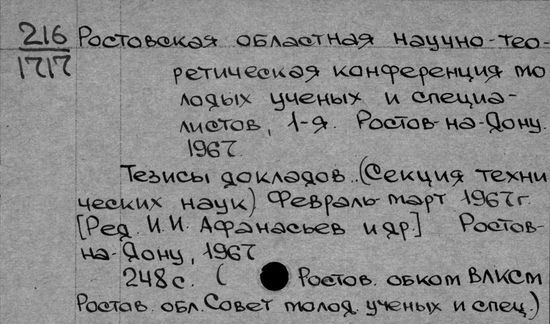 216 Ростовская областная научно-тео-
1717
ретическая конференция мо
лодых ученых и специа-
листов, 1-я. Ростов-на-Дону.
1967.
Тезисы докладов. (Секция техни
ческих наук) Февраль-март 1967г.
[Ред. И.И. Афанасьев и др.] Ростов-
на-Дону, 1967
248с. ( Ростов. обком ВЛКСМ
Ростов. обл. Совет молод. ученых и спец.)